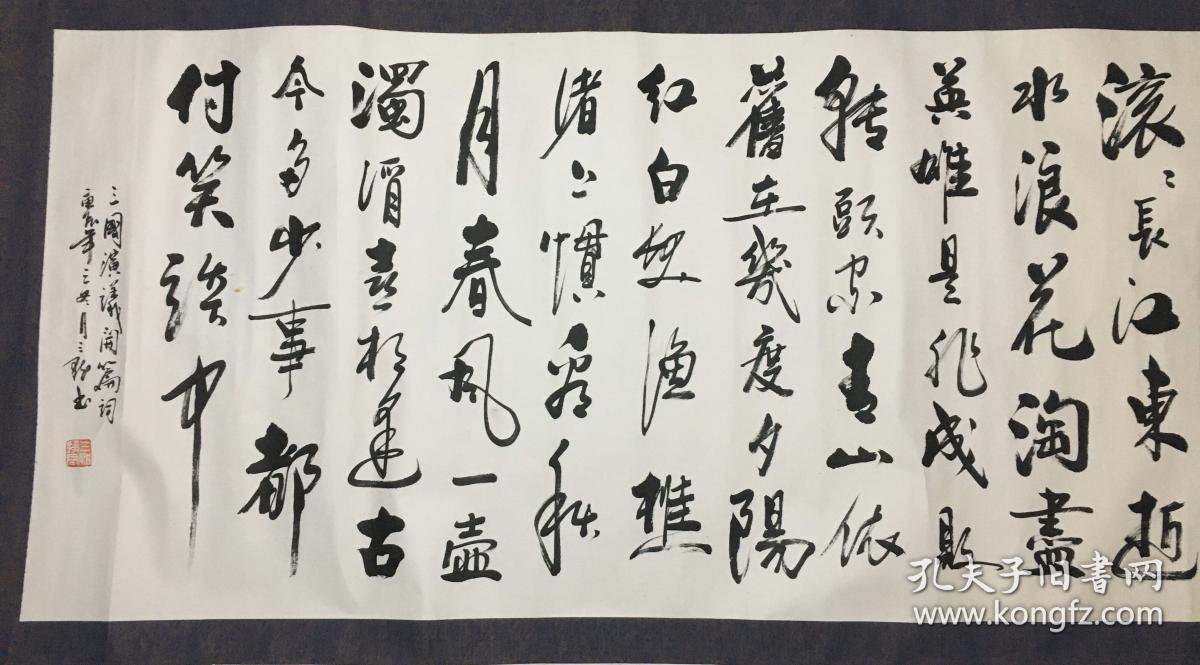 滚〻長江東逝
水浪花淘盡
英雄是非成敗
轉頭空青山依
舊在幾度夕陽
红白髮漁樵
渚上慣看秋
月春風一壺
濁酒喜相逢古
今多少事都
付笑談中
三國演義開篇詞
年之冬月三书
孔夫子旧书网
www.kongfz.com